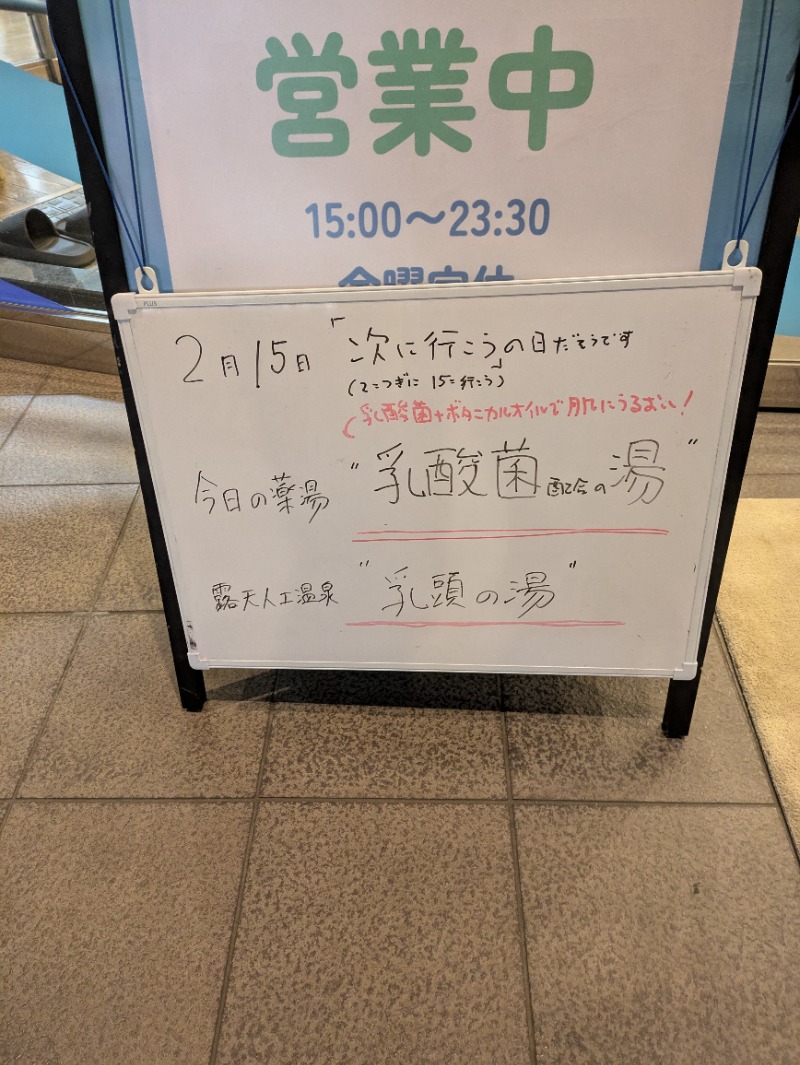 営業中
15:00～23:30
金曜定休
PLUS
2月15日「次に行こう」の日だそうです
(2=つぎに 15=行こう)
(乳酸菌+ボタニカルオイルで肌にうるおい!
今日の薬湯 "乳酸菌配合の湯"
露天人工温泉 "乳頭の湯"